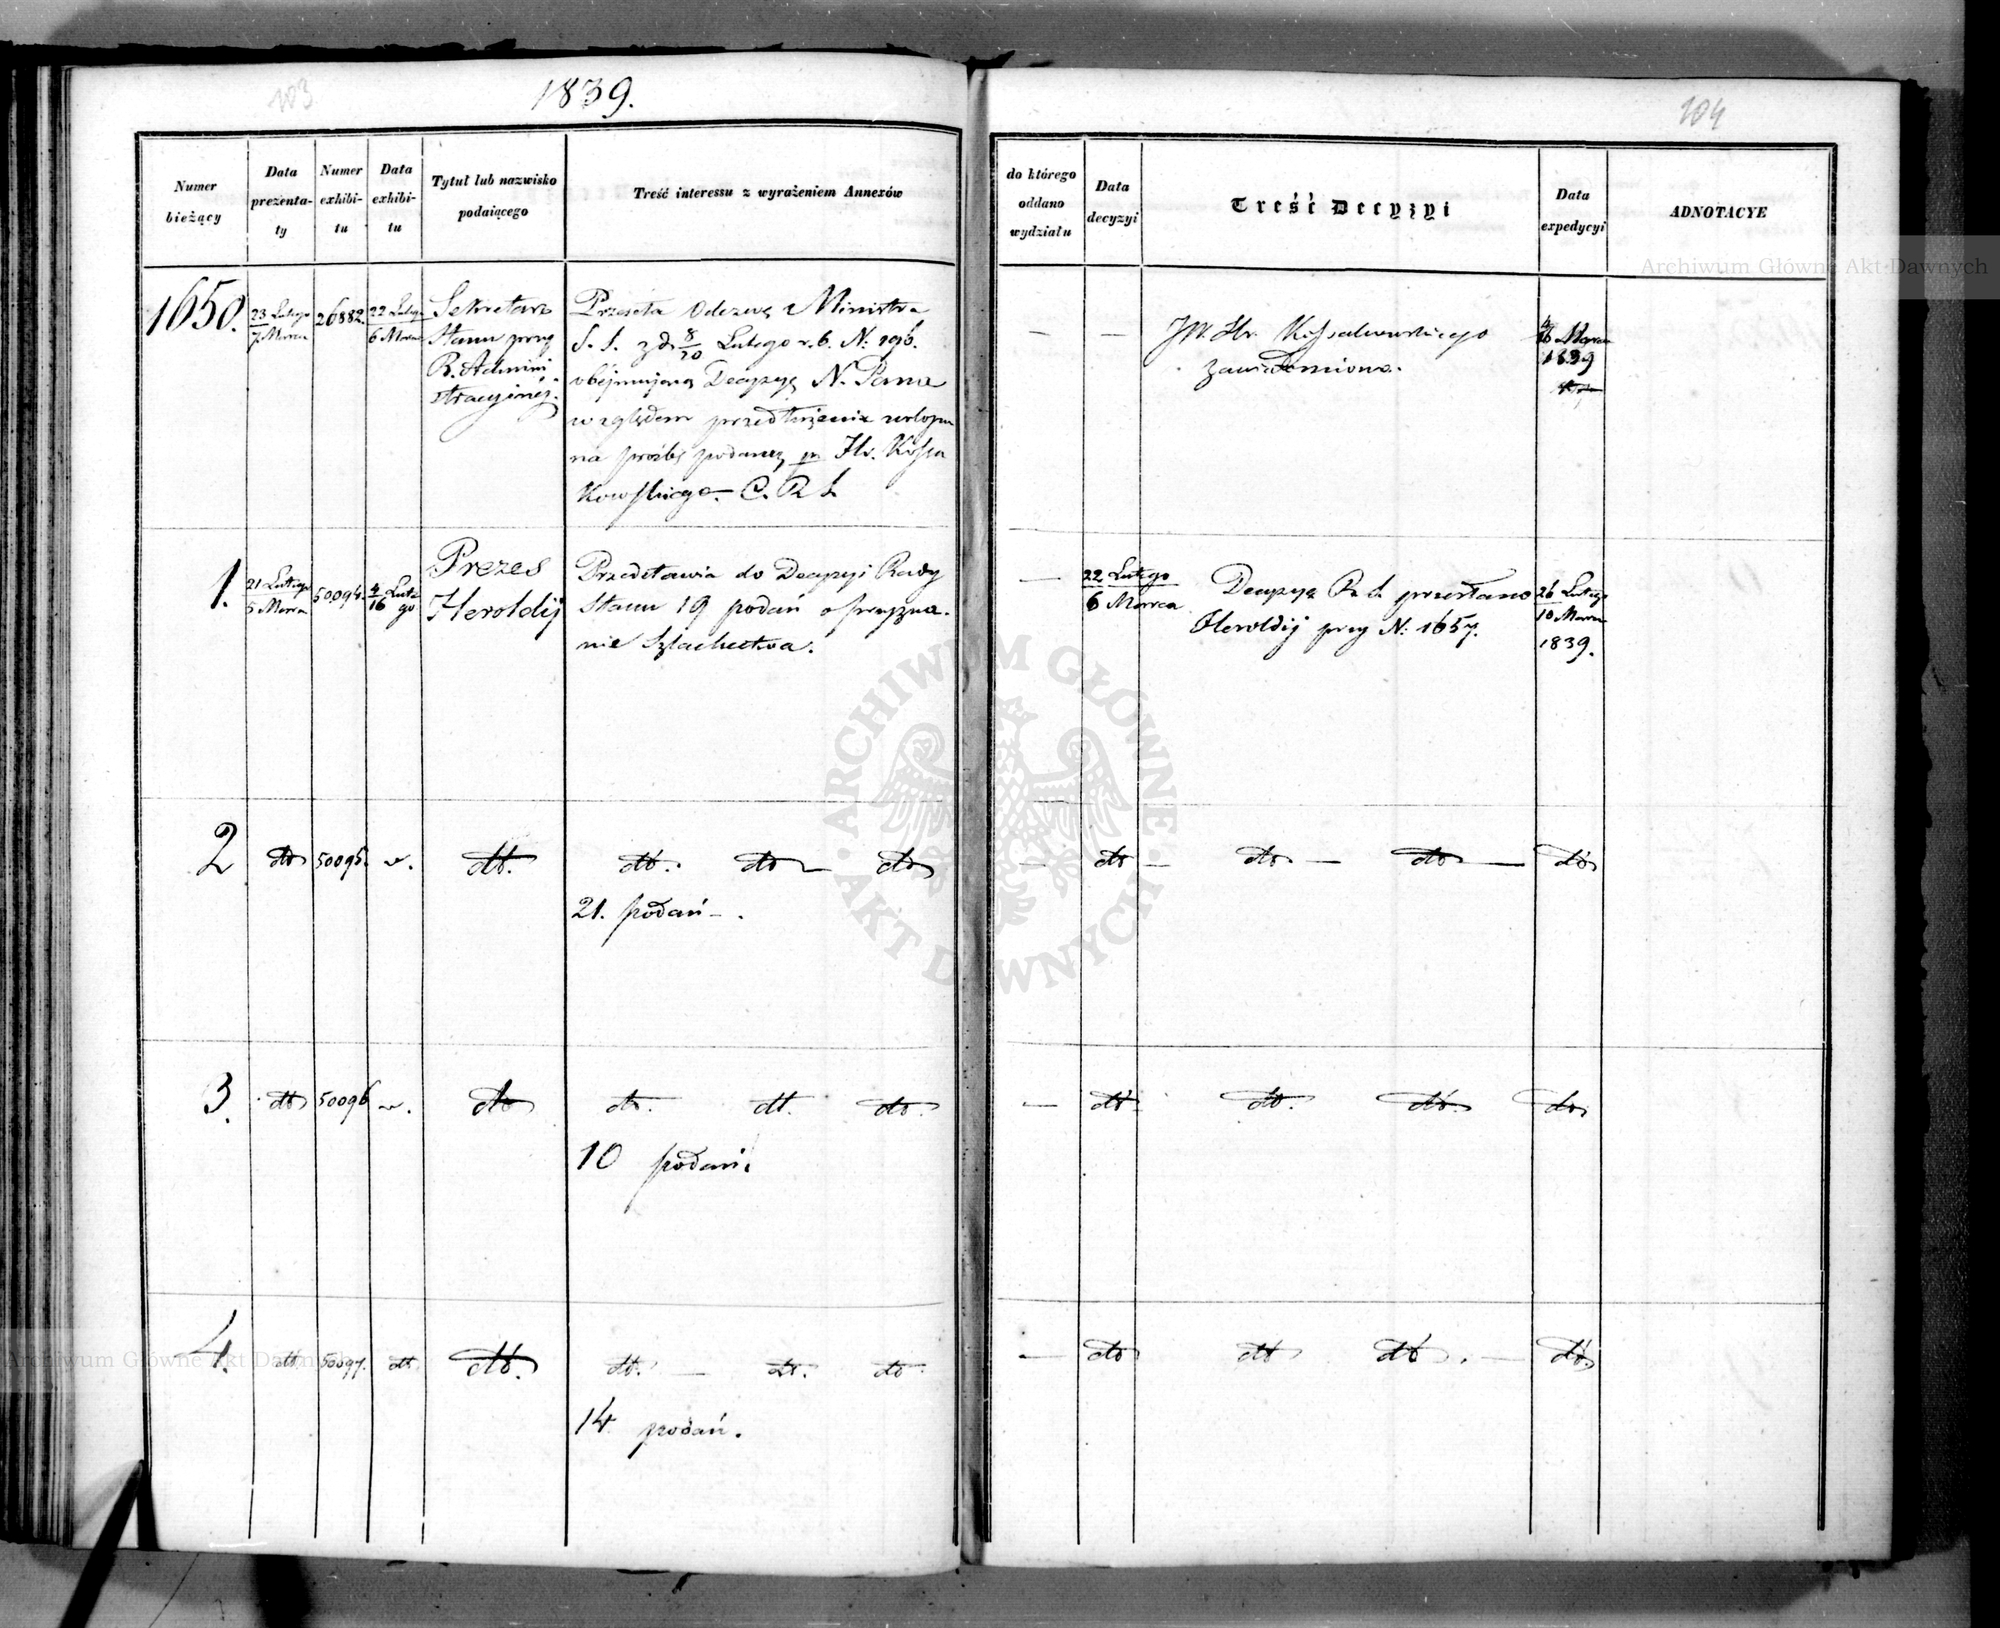 103
1839.
104
Numer bieżący
Data prezentaty
Numer exhibitu
Data exhibitu
Tytuł lub nazwisko podaiącego
Treść interessu z wyrażeniem Annexów
do którego oddano wydziału
Data decyzyi
Treść Decyzyi
Data expedycyi
ADNOTACYE
1650.
23 Lutego
7 Marca
26882.
22 Lutego
6 Marca
Sekretarz
Stanu przy
R. Admini
stracyjnej.
Przesyła Odezwę Ministra
S. S. z d. 8/20 Lutego r. b. N: 196.
obejmującą Decyzyę N. Pana
względem przedłużenia urlopu
na prośbę podaną pr. Hr. Kossa
kowskiego. C. R. S.
—
—
JW. Hr. Kossakowskiego
zawiadomiono.
Marca
1839
1.
21 Lutego
5 Marca
50094.
4
16 Lute
go
Prezes
Heroldij
Przedstawia do Decyzyi Rady
Stanu 19 podań o przyzna-
nie Szlachectwa.
—
22 Lutego
6 Marca
Decyzyę R. S. przesłano
Heroldij przy N: 1657.
26 Lutego
10 Marca
1839.
2
dto
50095.
dto.
dto. dto — dto
21. podań —.
— dto — dto — dto — dto
3.
dto
50096
dto
dto. dt. dto.
10 podań.
— dto. dto. dto. dto
4.
dto
50097.
dto
dto.
dto. — dto. dto.
14 podań.
— dto dto dto. — dto.
ARCHIWUM GŁÓWNE AKT DAWNYCH
Archiwum Główne Akt Dawnych
Archiwum Główne Akt Dawnych